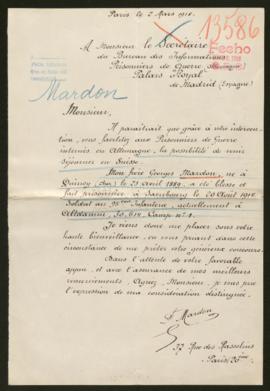 Paris le 2 Mars 1918.
13586
A Monsieur le Secrétaire
du Bureau des Informations
Prisonniers de Guerre
Palais Royal
de Madrid (Espagne)
Fecho
Mardon
Monsieur,
Il paraîtrait que grâce à votre interven-
tion, vous facilitez aux Prisonniers de Guerre
internés en Allemagne, la possibilité de venir
séjourner en Suisse.
Mon frère Georges Mardon, né à
(Cher) le 23 Avril 1889, a été blessé et
fait prisonnier à Sarrebourg le 20 Août 1914.
Soldat au 95ème Infanterie, actuellement à
Camp n° 1.
Je viens donc me placer sous votre
haute bienveillance, en vous priant dans cette
circonstance de me prêter votre généreux concours.
Dans l'attente de votre favorable
appui, et avec l'assurance de mes meilleurs
remerciements, Agréez, Monsieur, je vous prie
l'expression de ma considération distinguée.
Mardon
37 Rue des Rasselins
Paris 20ème